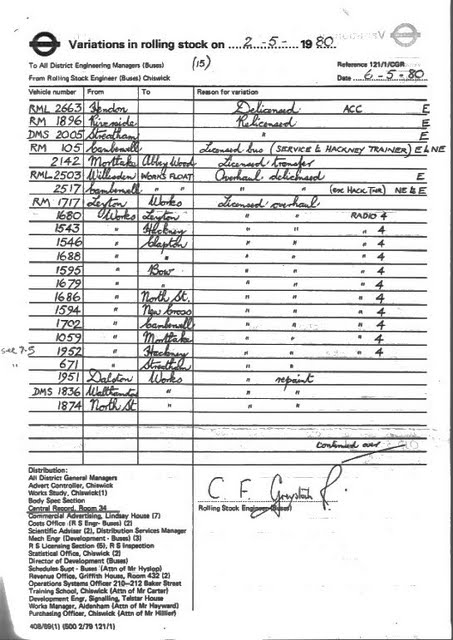 Variations in rolling stock on 2 - 5 - 1980
To All District Engineering Managers (Buses) (15) Reference 121/1/CGR
From Rolling Stock Engineer (Buses) Chiswick Date 6-5-80
Vehicle number From To Reason for variation
RML 2663 Hendon Delicensed ACC E
RM 1896 Riverside Relicensed E
DMS 2005 Streatham " E
RM 105 Camberwell Licensed bus (SERVICE & HACKNEY TRAINER) E & NE
2142 Mortlake Abbey Wood Licensed transfer
RML 2503 Willesden WORKS FLOAT Overhaul delicensed E
2517 Camberwell " " " " (EX HACK Tnr) NE & E
RM 1717 Leyton Works Licensed overhaul
1680 Works Leyton " " RADIO 4
1543 " Hackney " " " 4
1546 " Clapton " " " 4
1688 " " " " " 4
1595 " Bow " " " 4
1679 " " " " " 4
1686 " North St. " " " 4
1594 " New Cross " " " 4
1702 " Camberwell " " " 4
1059 " Mortlake " " " 4
see 7-5 1952 " Hackney " " " 4
" 671 " Streatham " "
1951 Dalston Works " repaint
DMS 1836 Walthamstow " " "
1874 North St " " "
continued over
Distribution:
All District General Managers
Advert Controller, Chiswick
Works Study, Chiswick(1)
Body Spec Section
Central Record, Room 34
Commercial Advertising, Lindsay House (7)
Costs Office (R S Engr- Buses) (2)
Scientific Adviser (2), Distribution Services Manager
Mech Engr (Development - Buses) (3)
R S Licensing Section (5), R S Inspection
Statistical Office, Chiswick (2)
Director of Development (Buses)
Schedules Supt - Buses (Attn of Mr Hyslop)
Revenue Office, Griffith House, Room 432 (2)
Operations Systems Officer 210-212 Baker Street
Training School, Chiswick (Attn of Mr Carter)
Development Engr, Signalling, Telstar House
Works Manager, Aldenham (Attn of Mr Hayward)
Purchasing Officer, Chiswick (Attn of Mr Hillier)
C. F.
Rolling Stock Engineer (Buses)
408/89(1) (500 2/79 121/1)